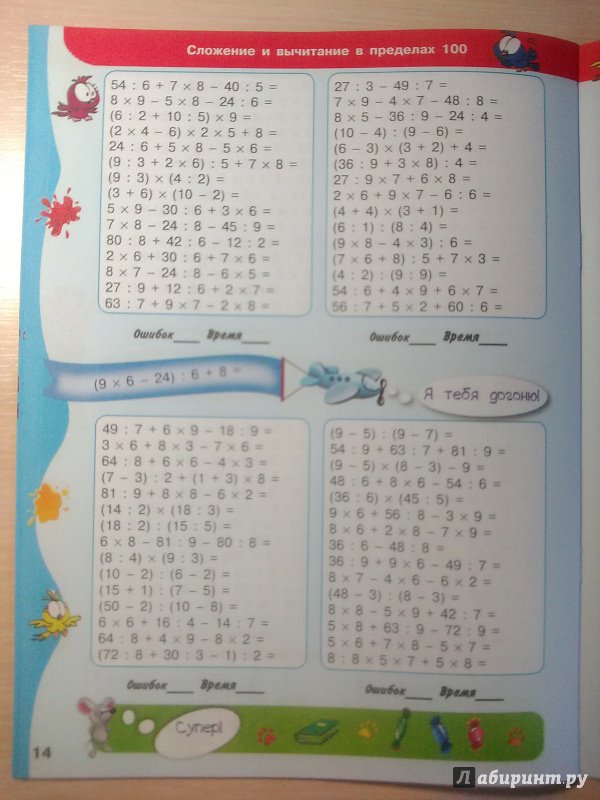 Сложение и вычитание в пределах 100
54 : 6 + 7 × 8 – 40 : 5 =
8 × 9 – 5 × 8 – 24 : 6 =
(6 : 2 + 10 : 5) × 9 =
(2 × 4 – 6) × 2 × 5 + 8 =
24 : 6 + 5 × 8 – 5 × 6 =
(9 : 3 + 2 × 6) : 5 + 7 × 8 =
(9 : 3) × (4 : 2) =
(3 + 6) × (10 – 2) =
5 × 9 – 30 : 6 + 3 × 6 =
7 × 8 – 24 : 8 – 45 : 9 =
80 : 8 + 42 : 6 – 12 : 2 =
2 × 6 + 30 : 6 + 7 × 6 =
8 × 7 – 24 : 8 – 6 × 5 =
27 : 9 + 12 : 6 + 2 × 7 =
63 : 7 + 9 × 7 – 2 × 8 =
Ошибок____ Время____
27 : 3 – 49 : 7 =
7 × 9 – 4 × 7 – 48 : 8 =
8 × 5 – 36 : 9 – 24 : 4 =
(10 – 4) : (9 – 6) =
(6 – 3) × (3 + 2) + 4 =
(36 : 9 + 3 × 8) : 4 =
27 : 9 × 7 + 6 × 8 =
2 × 6 + 9 × 7 – 6 : 6 =
(4 + 4) × (3 + 1) =
(6 : 1) : (8 : 4) =
(9 × 8 – 4 × 3) : 6 =
(7 × 6 + 8) : 5 + 7 × 3 =
(4 : 2) : (9 : 9) =
54 : 6 + 4 × 9 + 6 × 7 =
56 : 7 + 5 × 2 + 60 : 6 =
Ошибок____ Время____
(9 × 6 – 24) : 6 + 8 =
Я тебя догоню!
49 : 7 + 6 × 9 – 18 : 9 =
3 × 6 + 8 × 3 – 7 × 6 =
64 : 8 + 6 × 6 – 4 × 3 =
(7 – 3) : 2 + (1 + 3) × 8 =
81 : 9 + 8 × 8 – 6 × 2 =
(14 : 2) × (18 : 3) =
(18 : 2) : (15 : 5) =
6 × 8 – 81 : 9 – 80 : 8 =
(8 : 4) × (9 : 3) =
(10 – 2) : (6 – 2) =
(15 + 1) : (7 – 5) =
(50 – 2) : (10 – 8) =
6 × 6 + 16 : 4 – 14 : 7 =
64 : 8 + 4 × 9 – 8 × 2 =
(72 : 8 + 30 : 3 – 1) : 2 =
Ошибок____ Время____
(9 – 5) : (9 – 7) =
54 : 9 + 63 : 7 + 81 : 9 =
(9 – 5) × (8 – 3) – 9 =
48 : 6 + 8 × 6 – 54 : 6 =
(36 : 6) × (45 : 5) =
9 × 6 + 56 : 8 – 3 × 9 =
8 × 6 + 2 × 8 – 7 × 9 =
36 : 6 – 48 : 8 =
36 : 9 + 9 × 6 – 49 : 7 =
8 × 7 – 4 × 6 – 6 × 2 =
(48 – 3) : (8 – 3) =
8 × 8 – 5 × 9 + 42 : 7 =
5 × 8 + 63 : 9 – 72 : 9 =
5 × 6 + 7 × 8 – 5 × 7 =
8 : 8 × 5 × 7 + 5 × 8 =
Ошибок____ Время____
Супер!
14
Лабиринт.ру